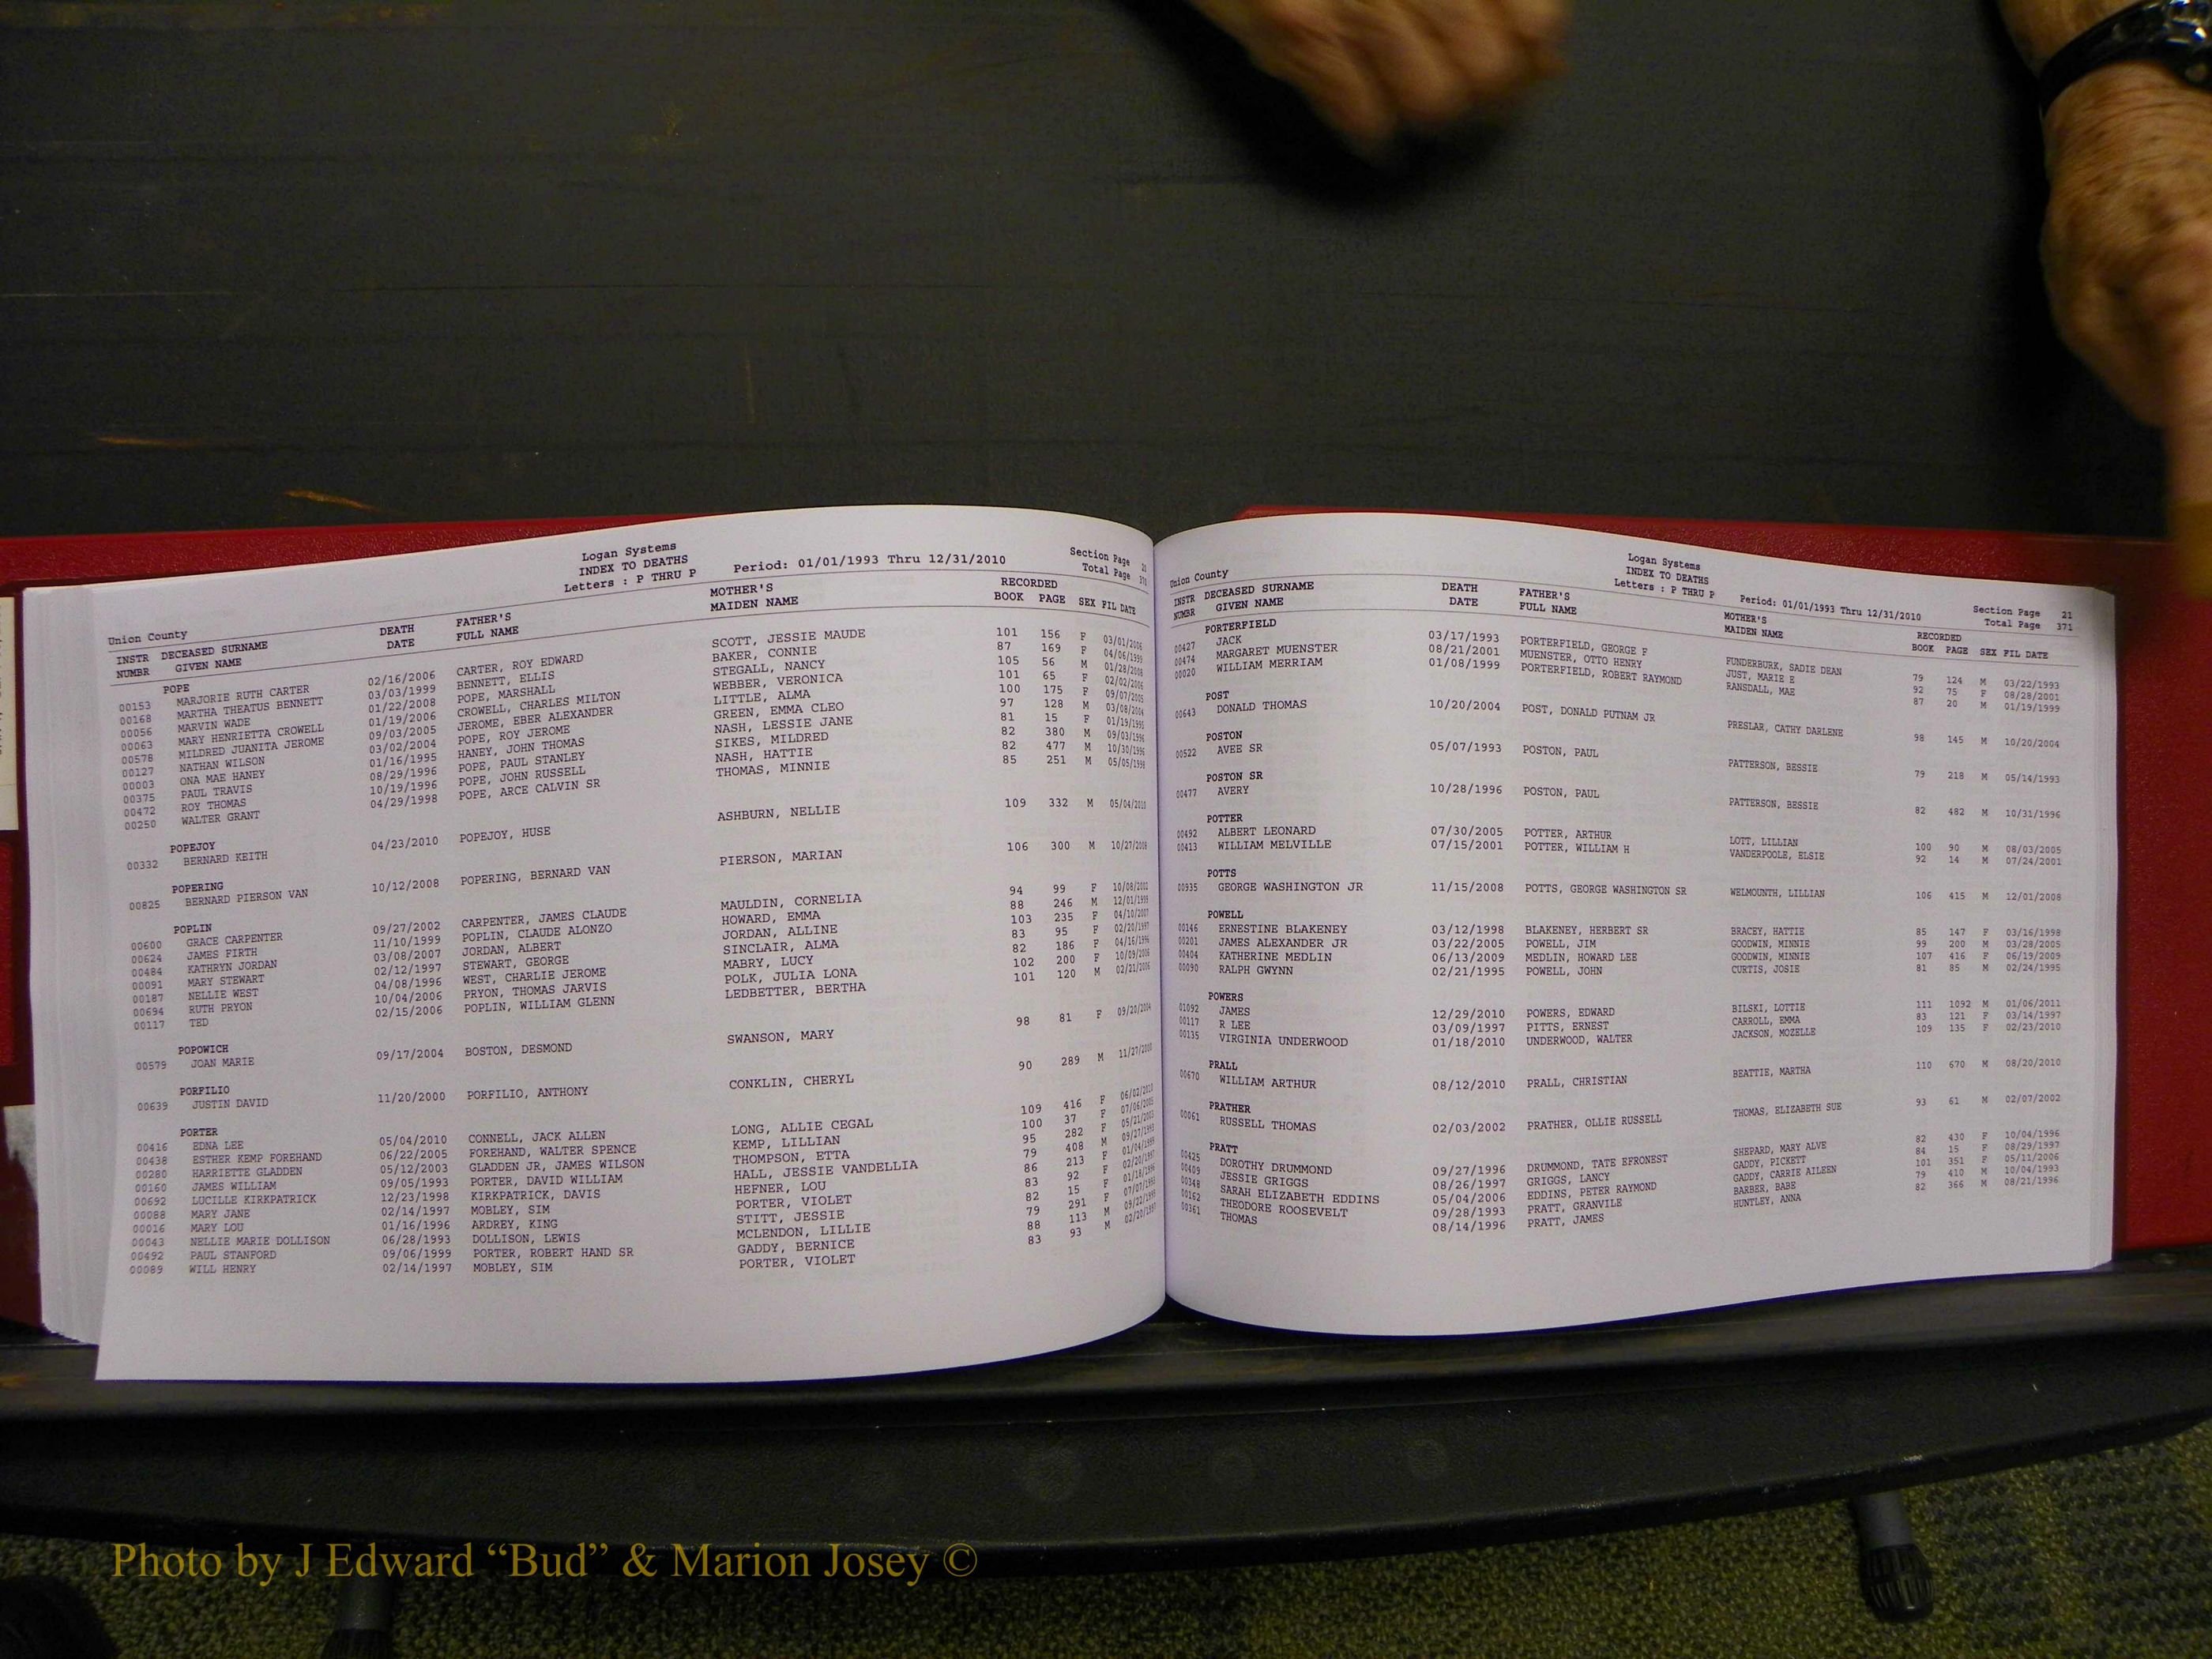 Logan Systems
INDEX TO DEATHS
Letters : P THRU P Period: 01/01/1993 Thru 12/31/2010
Section Page
Total Page
Union County
INSTR NUMBR DECEASED SURNAME GIVEN NAME DEATH DATE FATHER'S FULL NAME MOTHER'S MAIDEN NAME RECORDED BOOK PAGE SEX FIL DATE
POPE
00153 MARJORIE RUTH CARTER 02/16/2006 CARTER, ROY EDWARD SCOTT, JESSIE MAUDE 101 156 F 03/01/2006
00168 MARTHA THEATUS BENNETT 03/03/1999 BENNETT, ELLIS BAKER, CONNIE 87 169 F 04/06/1999
00056 MARVIN WADE 01/22/2008 POPE, MARSHALL STEGALL, NANCY 105 56 M 01/28/2008
00063 MARY HENRIETTA CROWELL 01/19/2006 CROWELL, CHARLES MILTON WEBBER, VERONICA 101 65 F 02/02/2006
00578 MILDRED JUANITA JEROME 09/03/2005 JEROME, EBER ALEXANDER LITTLE, ALMA 100 175 F 09/07/2005
00127 NATHAN WILSON 03/02/2004 POPE, ROY JEROME GREEN, EMMA CLEO 97 128 M 03/08/2004
00003 ONA MAE HANEY 01/16/1995 HANEY, JOHN THOMAS NASH, LESSIE JANE 81 15 F 01/19/1995
00375 PAUL TRAVIS 08/29/1996 POPE, PAUL STANLEY SIKES, MILDRED 82 380 M 09/03/1996
00472 ROY THOMAS 10/19/1996 POPE, JOHN RUSSELL NASH, HATTIE 82 477 M 10/30/1996
00250 WALTER GRANT 04/29/1998 POPE, ARCE CALVIN SR THOMAS, MINNIE 85 251 M 05/05/1998
POPEJOY
00332 BERNARD KEITH 04/23/2010 POPEJOY, HUSE ASHBURN, NELLIE 109 332 M 05/04/2010
POPERING
00825 BERNARD PIERSON VAN 10/12/2008 POPERING, BERNARD VAN PIERSON, MARIAN 106 300 M 10/27/2008
POPLIN
00600 GRACE CARPENTER 09/27/2002 CARPENTER, JAMES CLAUDE MAULDIN, CORNELIA 94 99 F 10/08/2002
00624 JAMES FIRTH 11/10/1999 POPLIN, CLAUDE ALONZO HOWARD, EMMA 88 246 M 12/01/1999
00484 KATHRYN JORDAN 03/08/2007 JORDAN, ALBERT JORDAN, ALLINE 103 235 F 04/10/2007
00091 MARY STEWART 02/12/1997 STEWART, GEORGE SINCLAIR, ALMA 83 95 F 02/20/1997
00187 NELLIE WEST 04/08/1996 WEST, CHARLIE JEROME MABRY, LUCY 82 186 F 04/16/1996
00694 RUTH PRYON 10/04/2006 PRYON, THOMAS JARVIS POLK, JULIA LONA 102 200 F 10/09/2006
00117 TED 02/15/2006 POPLIN, WILLIAM GLENN LEDBETTER, BERTHA 101 120 M 02/21/2006
POPOWICH
00579 JOAN MARIE 09/17/2004 BOSTON, DESMOND SWANSON, MARY 98 81 F 09/20/2004
PORFILIO
00639 JUSTIN DAVID 11/20/2000 PORFILIO, ANTHONY CONKLIN, CHERYL 90 289 M 11/27/2000
PORTER
00416 EDNA LEE 05/04/2010 CONNELL, JACK ALLEN LONG, ALLIE CEGAL 109 416 F 06/02/2010
00438 ESTHER KEMP FOREHAND 06/22/2005 FOREHAND, WALTER SPENCE KEMP, LILLIAN 100 37 F 07/06/2005
00280 HARRIETTE GLADDEN 05/12/2003 GLADDEN JR, JAMES WILSON THOMPSON, ETTA 95 282 F 05/21/2003
00160 JAMES WILLIAM 09/05/1993 PORTER, DAVID WILLIAM HALL, JESSIE VANDELLIA 79 408 M 09/27/1993
00692 LUCILLE KIRKPATRICK 12/23/1998 KIRKPATRICK, DAVIS HEFNER, LOU 86 213 F 01/04/1999
00088 MARY JANE 02/14/1997 MOBLEY, SIM PORTER, VIOLET 83 92 F 02/20/1997
00016 MARY LOU 01/16/1996 ARDREY, KING STITT, JESSIE 82 15 F 01/18/1996
00043 NELLIE MARIE DOLLISON 06/28/1993 DOLLISON, LEWIS MCLENDON, LILLIE 79 291 F 07/07/1993
00492 PAUL STANFORD 09/06/1999 PORTER, ROBERT HAND SR GADDY, BERNICE 88 113 M 09/22/1999
00089 WILL HENRY 02/14/1997 MOBLEY, SIM PORTER, VIOLET 83 93 M 02/20/1997
Logan Systems
INDEX TO DEATHS
Letters : P THRU P Period: 01/01/1993 Thru 12/31/2010
Section Page 21
Total Page 371
Union County
INSTR NUMBR DECEASED SURNAME GIVEN NAME DEATH DATE FATHER'S FULL NAME MOTHER'S MAIDEN NAME RECORDED BOOK PAGE SEX FIL DATE
PORTERFIELD
00427 JACK 03/17/1993 PORTERFIELD, GEORGE F FUNDERBURK, SADIE DEAN 79 124 M 03/22/1993
00474 MARGARET MUENSTER 08/21/2001 MUENSTER, OTTO HENRY JUST, MARIE E 92 75 F 08/28/2001
00020 WILLIAM MERRIAM 01/08/1999 PORTERFIELD, ROBERT RAYMOND RANSDALL, MAE 87 20 M 01/19/1999
POST
00643 DONALD THOMAS 10/20/2004 POST, DONALD PUTNAM JR PRESLAR, CATHY DARLENE 98 145 M 10/20/2004
POSTON
00522 AVEE SR 05/07/1993 POSTON, PAUL PATTERSON, BESSIE 79 218 M 05/14/1993
POSTON SR
00477 AVERY 10/28/1996 POSTON, PAUL PATTERSON, BESSIE 82 482 M 10/31/1996
POTTER
00492 ALBERT LEONARD 07/30/2005 POTTER, ARTHUR LOTT, LILLIAN 100 90 M 08/03/2005
00413 WILLIAM MELVILLE 07/15/2001 POTTER, WILLIAM H VANDERPOOLE, ELSIE 92 14 M 07/24/2001
POTTS
00935 GEORGE WASHINGTON JR 11/15/2008 POTTS, GEORGE WASHINGTON SR WELMOUNTH, LILLIAN 106 415 M 12/01/2008
POWELL
00146 ERNESTINE BLAKENEY 03/12/1998 BLAKENEY, HERBERT SR BRACEY, HATTIE 85 147 F 03/16/1998
00201 JAMES ALEXANDER JR 03/22/2005 POWELL, JIM GOODWIN, MINNIE 99 200 M 03/28/2005
00404 KATHERINE MEDLIN 06/13/2009 MEDLIN, HOWARD LEE GOODWIN, MINNIE 107 416 F 06/19/2009
00090 RALPH GWYNN 02/21/1995 POWELL, JOHN CURTIS, JOSIE 81 85 M 02/24/1995
POWERS
01092 JAMES 12/29/2010 POWERS, EDWARD BILSKI, LOTTIE 111 1092 M 01/06/2011
00117 R LEE 03/09/1997 PITTS, ERNEST CARROLL, EMMA 83 121 F 03/14/1997
00135 VIRGINIA UNDERWOOD 01/18/2010 UNDERWOOD, WALTER JACKSON, MOZELLE 109 135 F 02/23/2010
PRALL
00670 WILLIAM ARTHUR 08/12/2010 PRALL, CHRISTIAN BEATTIE, MARTHA 110 670 M 08/20/2010
PRATHER
00061 RUSSELL THOMAS 02/03/2002 PRATHER, OLLIE RUSSELL THOMAS, ELIZABETH SUE 93 61 M 02/07/2002
PRATT
00425 DOROTHY DRUMMOND 09/27/1996 DRUMMOND, TATE EFRONEST SHEPARD, MARY ALVE 82 430 F 10/04/1996
00409 JESSIE GRIGGS 08/26/1997 GRIGGS, LANCY GADDY, PICKETT 84 15 F 08/29/1997
00348 SARAH ELIZABETH EDDINS 05/04/2006 EDDINS, PETER RAYMOND GADDY, CARRIE AILEEN 101 351 F 05/11/2006
00162 THEODORE ROOSEVELT 09/28/1993 PRATT, GRANVILE BARBER, BABE 79 410 M 10/04/1993
00361 THOMAS 08/14/1996 PRATT, JAMES HUNTLEY, ANNA 82 366 M 08/21/1996
Photo by J Edward “Bud” & Marion Josey ©